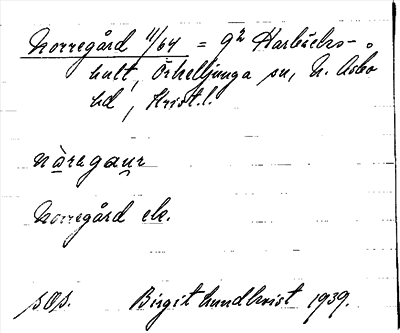 Norregård 11/64 = g2 Harbäcks-
hult, Örkelljunga sn, N. Åsbo
hd, Krist.l.
nàragaur
Norregård ek.
Birgit Lundkvist 1939.